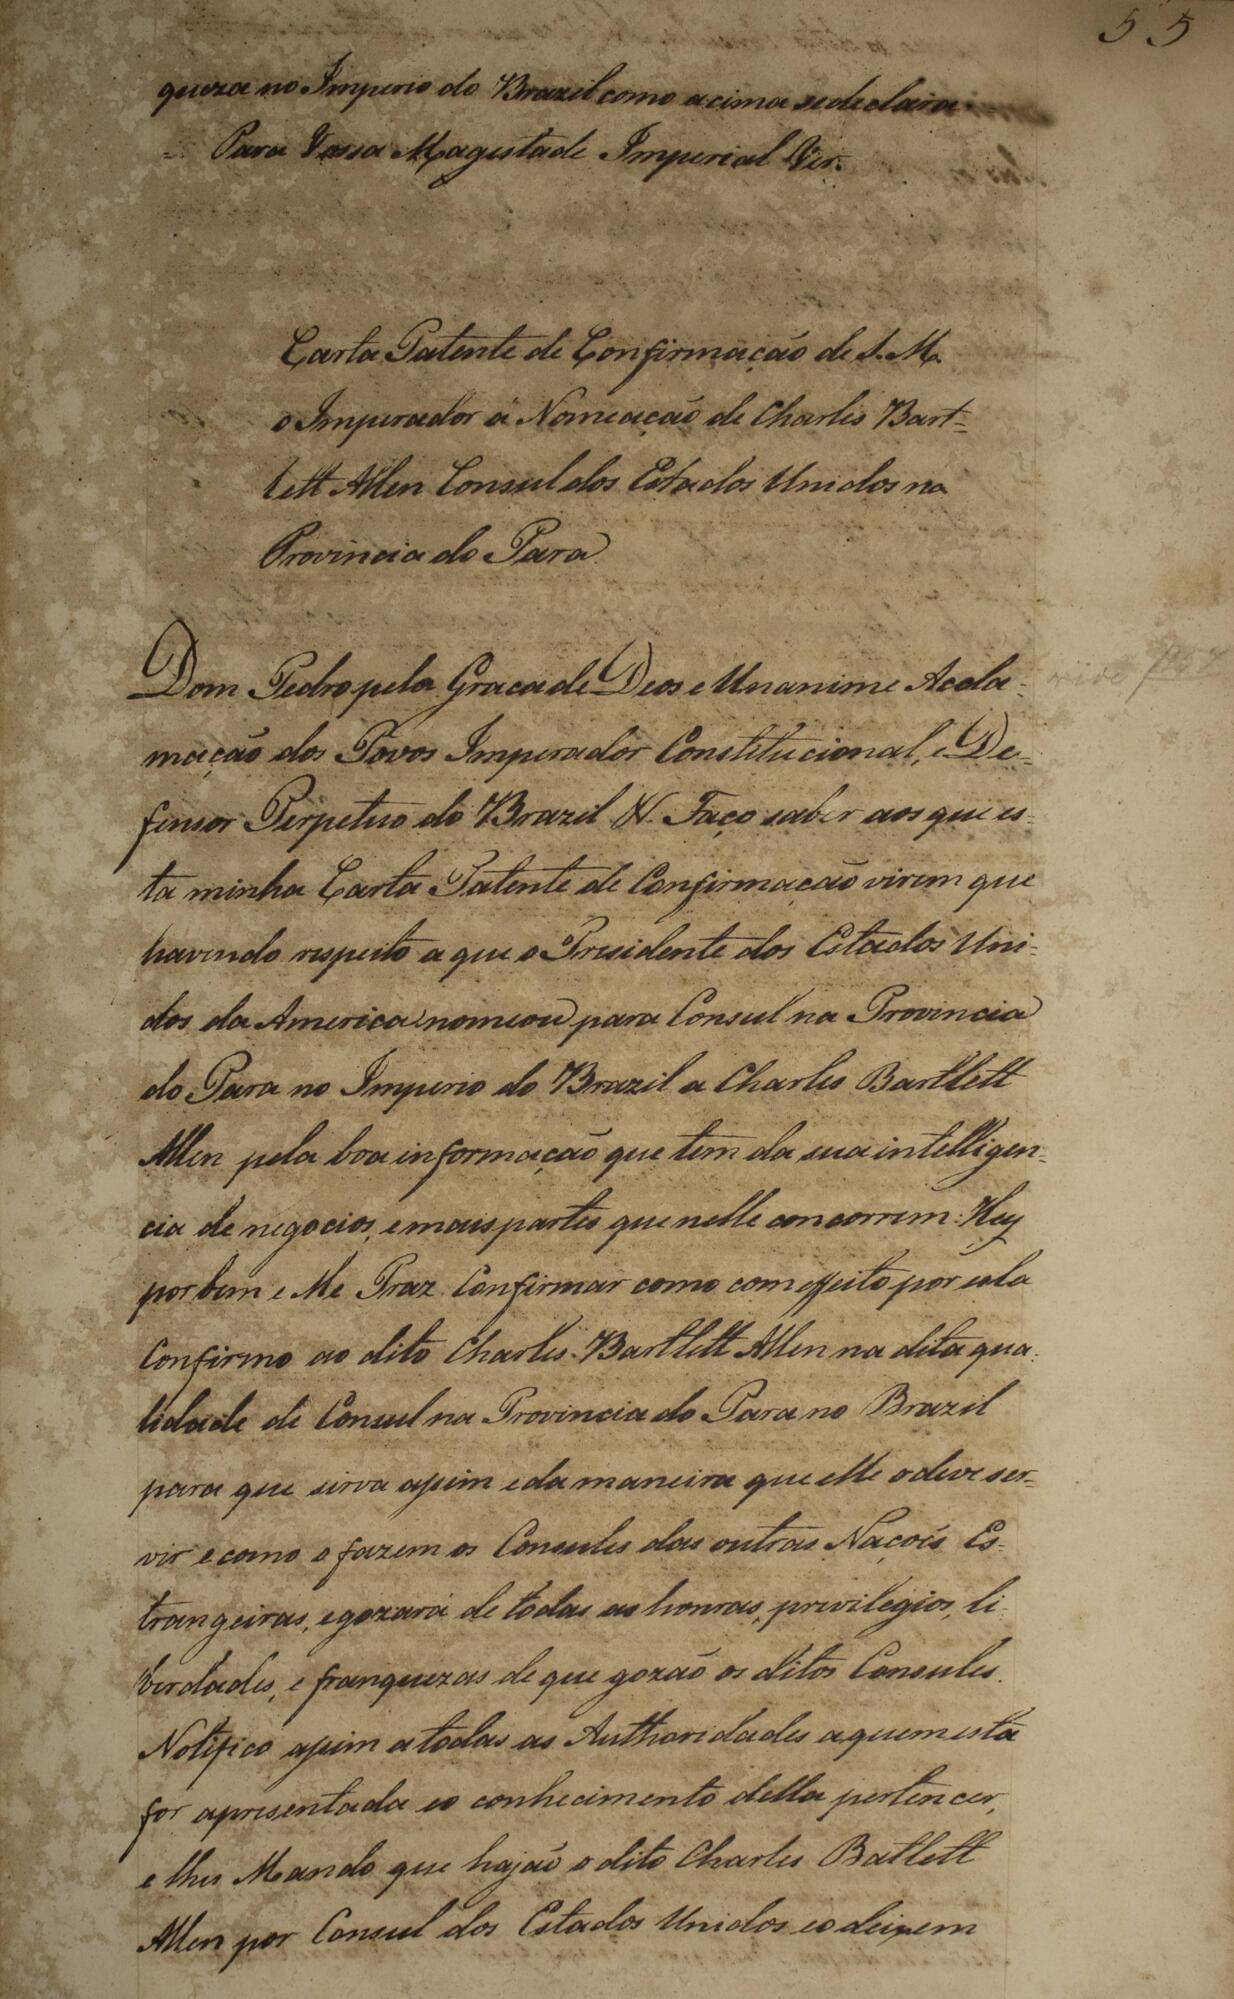 55
gueza no Imperio do Brazil como acima se declara.
Para Vossa Magestade Imperial Ver.
Carta Patente de Confirmação de S. M.
o Imperador á Nomeação de Charles Bart=
lett Allen Consul dos Estados Unidos na
Provincia do Para
Dom Pedro pela Graca de Deos e Unanime Acola-
mação dos Povos Imperador Constitucional, e De-
fensor Perpetuo do Brazil &. Faço saber aos que es-
ta minha Carta Patente de Confirmacão virem que
havendo respeito a que o Presidente dos Estados Uni-
dos da America nomeou para Consul na Provincia
do Para no Imperio do Brazil a Charles Bartlett
Allen pela boa informação que tem da sua intelligen-
cia de negocios, e mais partes que nelle concorrem: Hey
por bem e Me Praz Confirmar como com effeito por esta
Confirmo ao dito Charles Bartlett Allen na dita qua-
lidade de Consul na Provincia do Para no Brazil
para que sirva assim e da maneira que elle o deve ser-
vir e como o fazem os Consules das outras Naçoẽs Es-
trangeiras, e gozará de todas as honras, privilegios, li-
berdades, e franquezas de que gozão os ditos Consules.
Notifico assim a todas as Authoridades a quem esta
for apresentada e o conhecimento della pertencer,
e lhes Mando que hajão o dito Charles Batlett
Allen por Consul dos Estados Unidos e o deixem